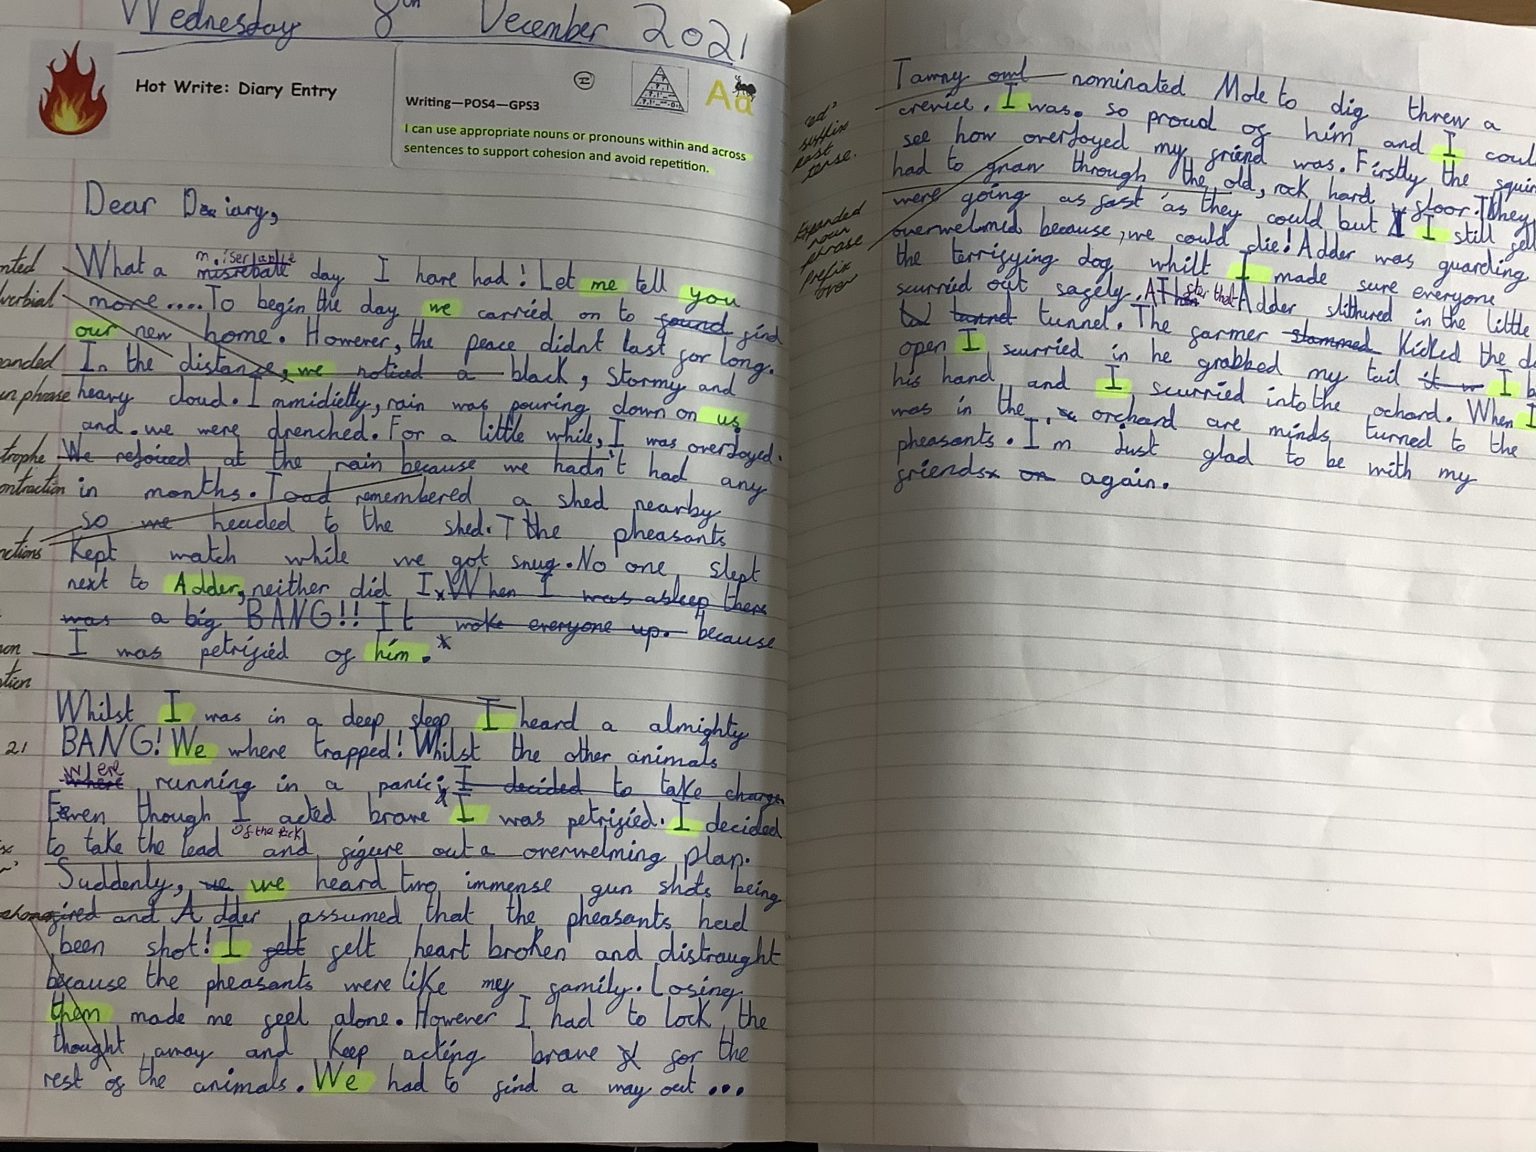 Wednesday 8th December 2021
Hot Write: Diary Entry
Writing—POS4—GPS3
I can use appropriate nouns or pronouns within and across
sentences to support cohesion and avoid repetition.
Aa
Dear Diary,
What a miserable day I have had! Let me tell you
more.... To begin the day we carried on to found find
our new home. However, the peace didnt last for long.
In the distance, we noticed a black, stormy and
heavy cloud. Immidietly, rain was pouring down on us
and we were drenched. For a little while, I was overjoyed.
We rejoiced at the rain because we hadn't had any
in months. Toad remembered a shed nearby
so we headed to the shed. The pheasants
Kept watch while we got snug. No one slept
next to Adder, neither did I. When I was asleep there
was a big BANG!! It woke everyone up. because
I was petrified of him.
Whilst I was in a deep sleep I heard a almighty
BANG! We where trapped! Whilst the other animals
where running in a panic; I decided to take charge
Even though I acted brave I was petrified. I decided
to take the lead of the pack and figure out a overwelming plan.
Suddenly, we we heard two immense gun shots being
fired and Adder assumed that the pheasants had
been shot! I felt felt heart broken and distraught
because the pheasants were like my family. Losing
them made me feel alone. However I had to lock the
thought away and Keep acting brave for the
rest of the animals. We had to find a way out...
Tawny owl nominated Mole to dig threw a
crevice. I was so proud of him and I
see how overjoyed my friend was. Firstly the
had to gnaw through the old, rock hard floor. They
were going as fast as they could but I I still
overwelmed because, we could die! Adder was guarding
the terrifying dog whilt I made sure everyone
scurried out safely. After that Adder slithured in the little
tunnel. The farmer slammed Kicked the
open I scurried in he grabbed my tail I
his hand and I scurried into the ochard. When I
was in the orchard are minds turned to the
pheasants. Im Just glad to be with my
friends on again.
'ed'
suffix
past
tense.
Expanded
noun
phrase
prefix
over